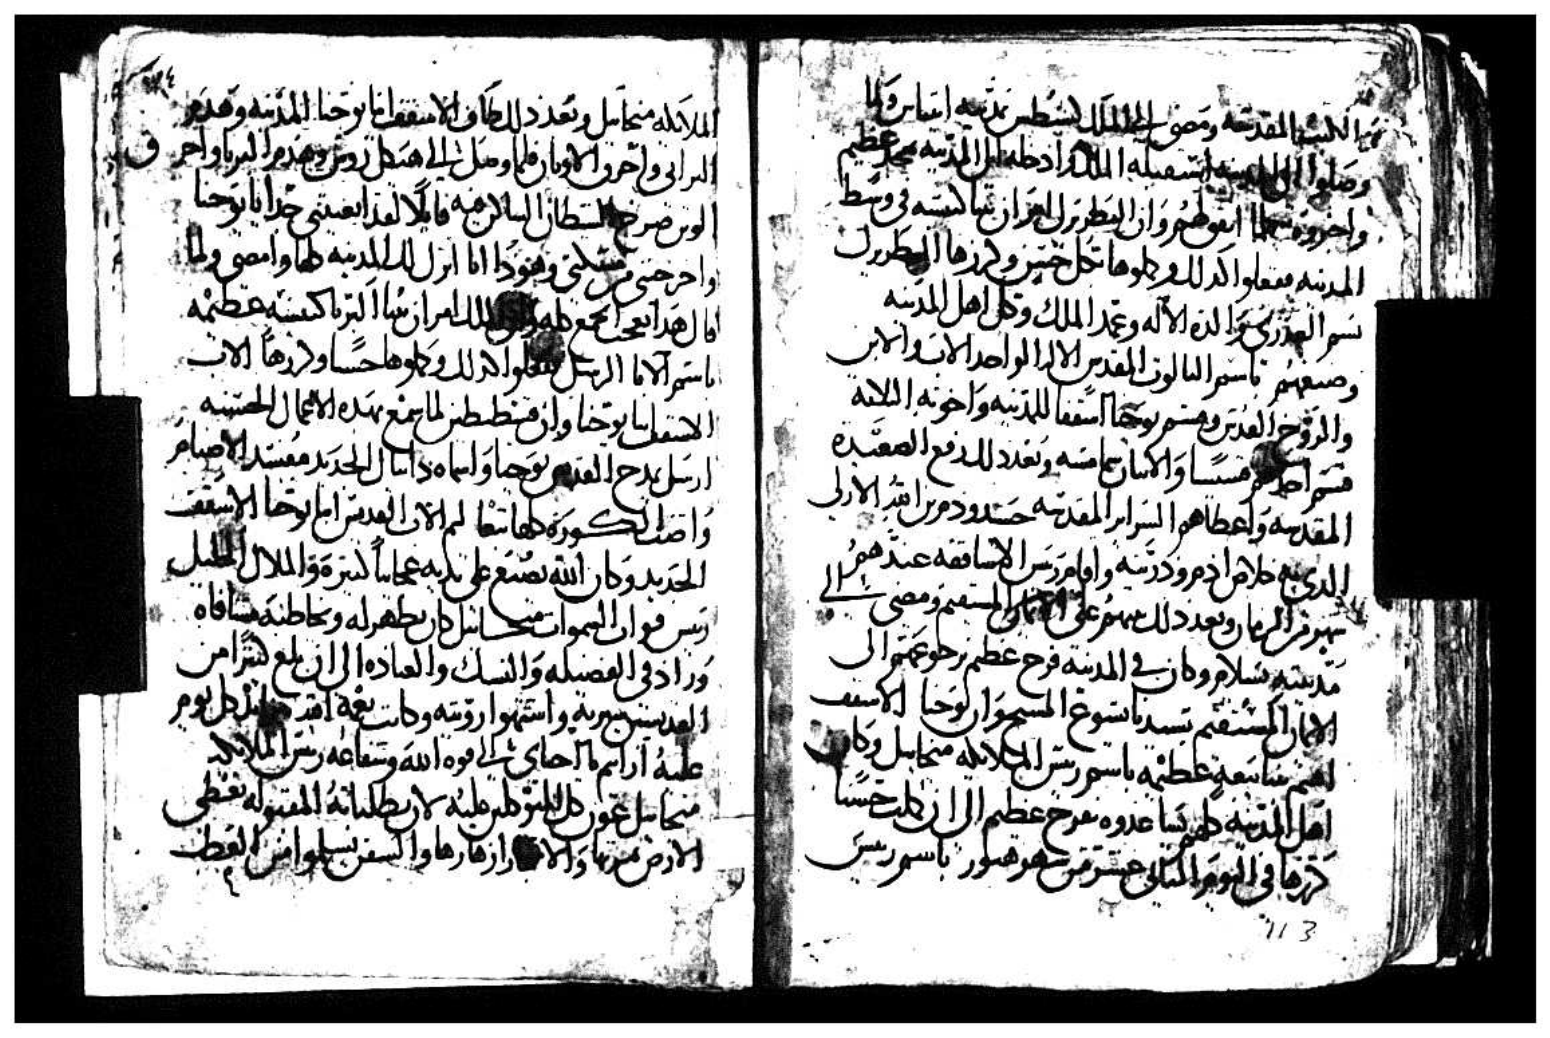 الكنيسه المقدسه ومضى الى الملك بمدينه ولما
وصلوا الى المدينه استقبله الملك وادخله الى المدينه بمجد عظيم
واخبروه وان البطريرك امر ان تبنا كنيسه في وسط
المدينه ففعلوا كذلك وكملوها بكل حسن وكرزها البطريرك
بسم العذرى والدة الاله وعمد الملك وكل اهل المدينه
وصبغهم باسم الثالوث المقدس الاله الواحد الاب والابن
والروح القدس وقسم يوحنا اسقفا للمدينه واخوته الثلاثه
قسم احدهم قسيسا والاثنان شمامسه وبعد ذلك رفع الصعيده
المقدسه واعطاهم السراير المقدسه جسد ودم ابن الله الازلى
الذي به خلاص ادم وذريته واقام ريس الاساقفه عندهم
شهر من الزمان وبعد ذلك على المستقيم ومضى الى
مدينته بسلام وكان في المدينه فرح عظيم برجوعهم الى
الايمان المستقيم بسيدنا يسوع المسيح وان يوحنا الاسقف
اهتم ببنا بيعه عظيمه باسم ريس الملايكه ميخاييل وكان
اهل المدينه كلهم يساعدوه بفرح عظيم الى ان كملت حسنا
كرزها في اليوم الثاني عشر من شهر هتور باسم ريس
113
الملايكه ميخاييل وبعد ذلك طاف الاسقف انبا يوحنا المدينه وهدم
البرابي واحرق الاوثان فلما وصل الى هيكل وهدم البربا واحرق
الوثن صرخ الشيطان الساكن فيه قايلا لقد اتعبتني جدا يا يوحنا
واخرجتني من مسكني وهوذا انا اترك لك المدينه كلها وامضي ولما
قال هذا تعجب الجمع كله الملك امر ان تبنا البربا كنيسه عظيمه
باسم الابا الرسل ففعلوا كذلك وكملوها حسنا وكرزها الاب
الاسقف انبا يوحنا وان قسطنطين لما سمع بهذه الاعمال الحسنه
ارسل يمدح القديس يوحنا واسماه دانيال الجديد مفسد الاصنام
واضت الكوره كلها تبعا لهم الاب القديس انبا يوحنا الاسقف
الجديد وكان الله يصنع على يديه عجايبا كثيره والملاك الجليل
ريس قوات السموات ميخاييل كان يظهر له ويخاطبه شفاه
وزاد في الفضيله والنسك والعباده الى ان بلغ كثيرا من
القديسين سيرته واشتهوا رويته وكانت كل يوم
عليه قوه الله وشفاعه ريس الملايكه
ميخاييل عون كل المتوكلين عليه لان بطلباته المقبوله تعطى
الارض ثمرتها ازهارها والسفن يسلموا من العطب